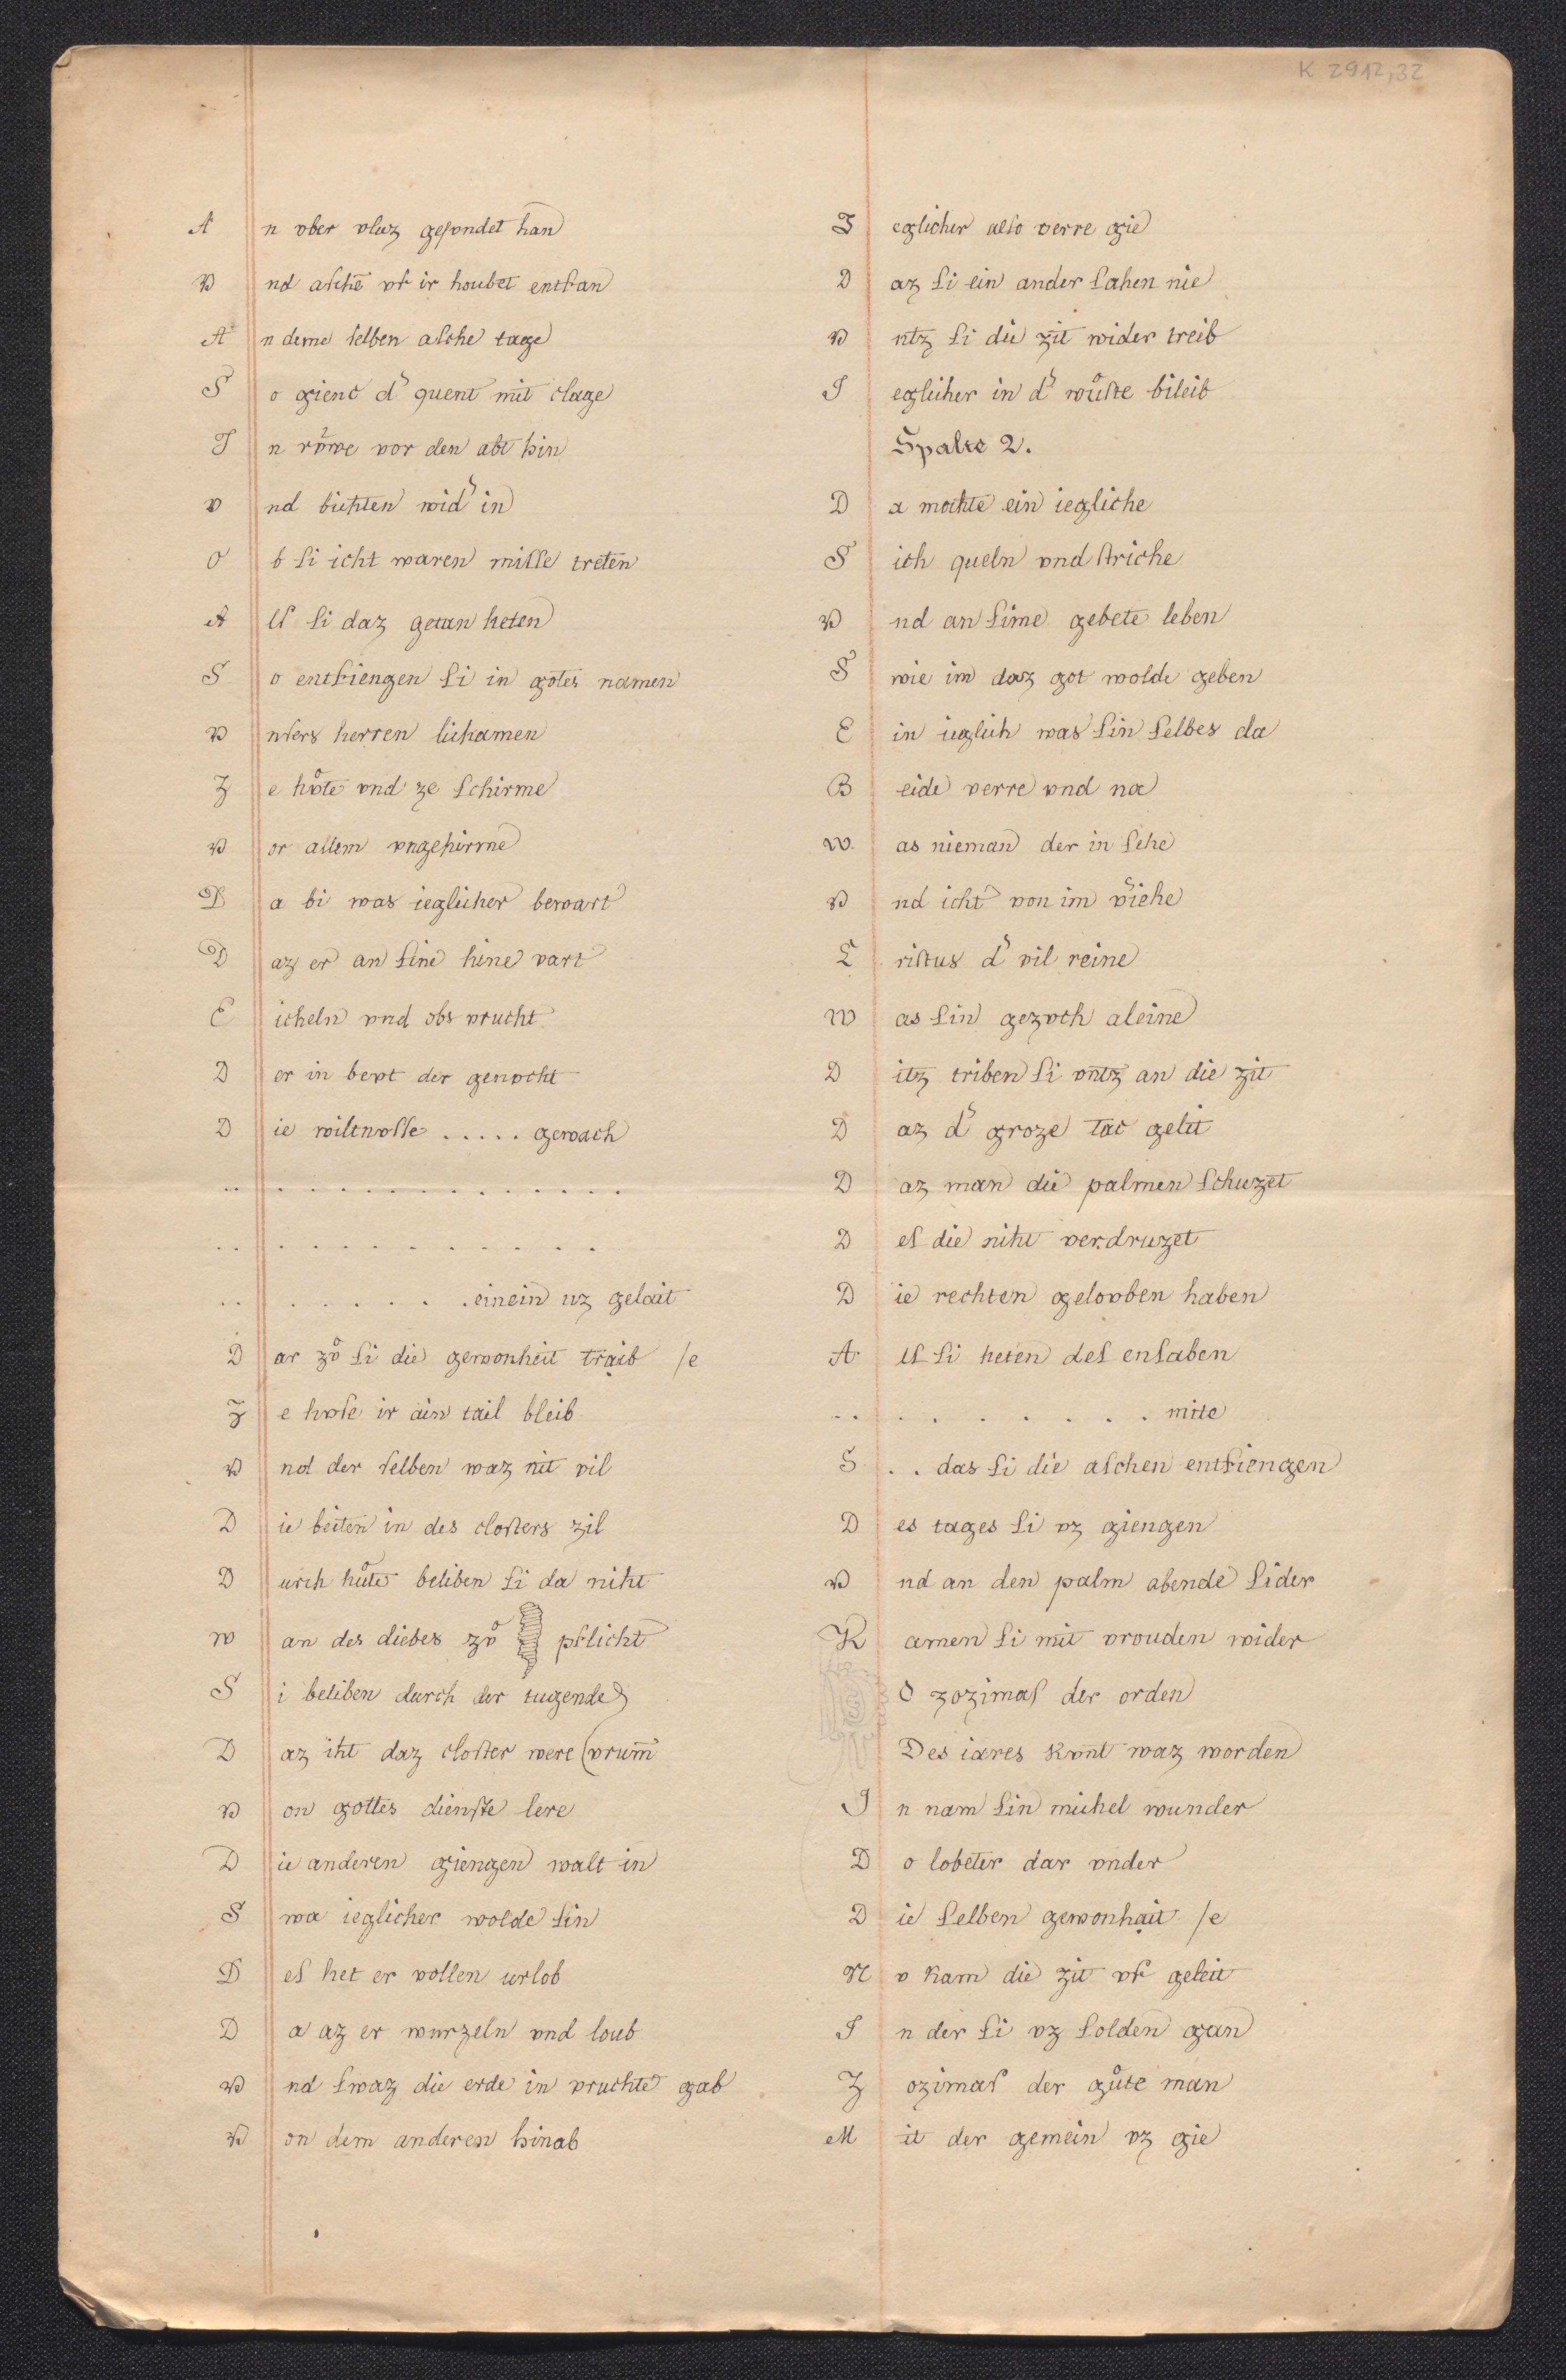 K 2912,32
A n vber vluz gesvndet han
V nd aſchē vf ir houbet entfan
A n deme ſelben aſche tage
S o gienc d' quent mit clage
J n rv̊we vor den abt hin
v nd bichten wid' in
O b ſi icht waren miſſe treten
A lſ ſi daz getan heten
S o entfiengen ſi in gotes namen
V nſers herren lichamen
Z e hv̊te vnd ze ſchirme
V or allem vngehirme
D a bi was ieglicher bewart
D az er an ſine hine vart
E icheln vnd obs vrucht
D er in bevt der genvcht
D ie wiltnvſſe . . . . . gewach
. . . . . . . . . . . . . . . .
. . . . . . . . . . . . . .
. . . . . . . . . einein uz gelait
D ar zv̊ ſi die gewonheit traib /e
Z e hvſe ir ain tail bleib
V nd der ſelben waz nit vil
D ie beiten in des cloſters zil
D urch hůte beliben ſi da niht
W an des diebes zv̊ pflicht
S i beliben durch der tugende
D az iht daz cloſter were (vrum̄
V on gottes dienſte lere
D ie anderen giengen walt in
S wa ieglicher wolde ſin
D eſ het er vollen urlob
D a az er wurzeln vnd loub
V nd ſwaz die erde in vruchte gab
V on dem anderen hinab
J eglicher alſo verre gie
D az ſi ein ander ſahen nie
V ntz ſi die zit wider treib
J eglicher in d' wůſte bileib
Spalte 2.
D a mochte ein iegliche
S ich queln vnd ſtriche
V nd an ſime gebete leben
S wie im daz got wolde geben
E in ieglich was ſin ſelbes da
B eide verre vnd na
W as nieman der in ſehe
V nd icht von im v'iehe
X riſtus d' vil reine
W as ſin gezvch aleine
D itz triben ſi vntz an die zit
D az d' groze tac gelit
D az man die palmen ſchuzet
D eſ die niht verdruzet
D ie rechten gelovben haben
A lſ ſi heten deſ enſaben
. . . . . . . . . . mite
S . . das ſi die aſchen entfiengen
D es tages ſi vz giengen
V nd an den palm abende ſider
K amen ſi mit vrouden wider
O zozimaſ der orden
Des iares kvnt waz worden
J n nam ſin michel wunder
D o lobeter dar vnder
D ie ſelben gewonhait /e
N v kam die zit vf geleit
J n der ſi vz ſolden gan
Z ozimaſ der gůte man
M it der gemein vz gie